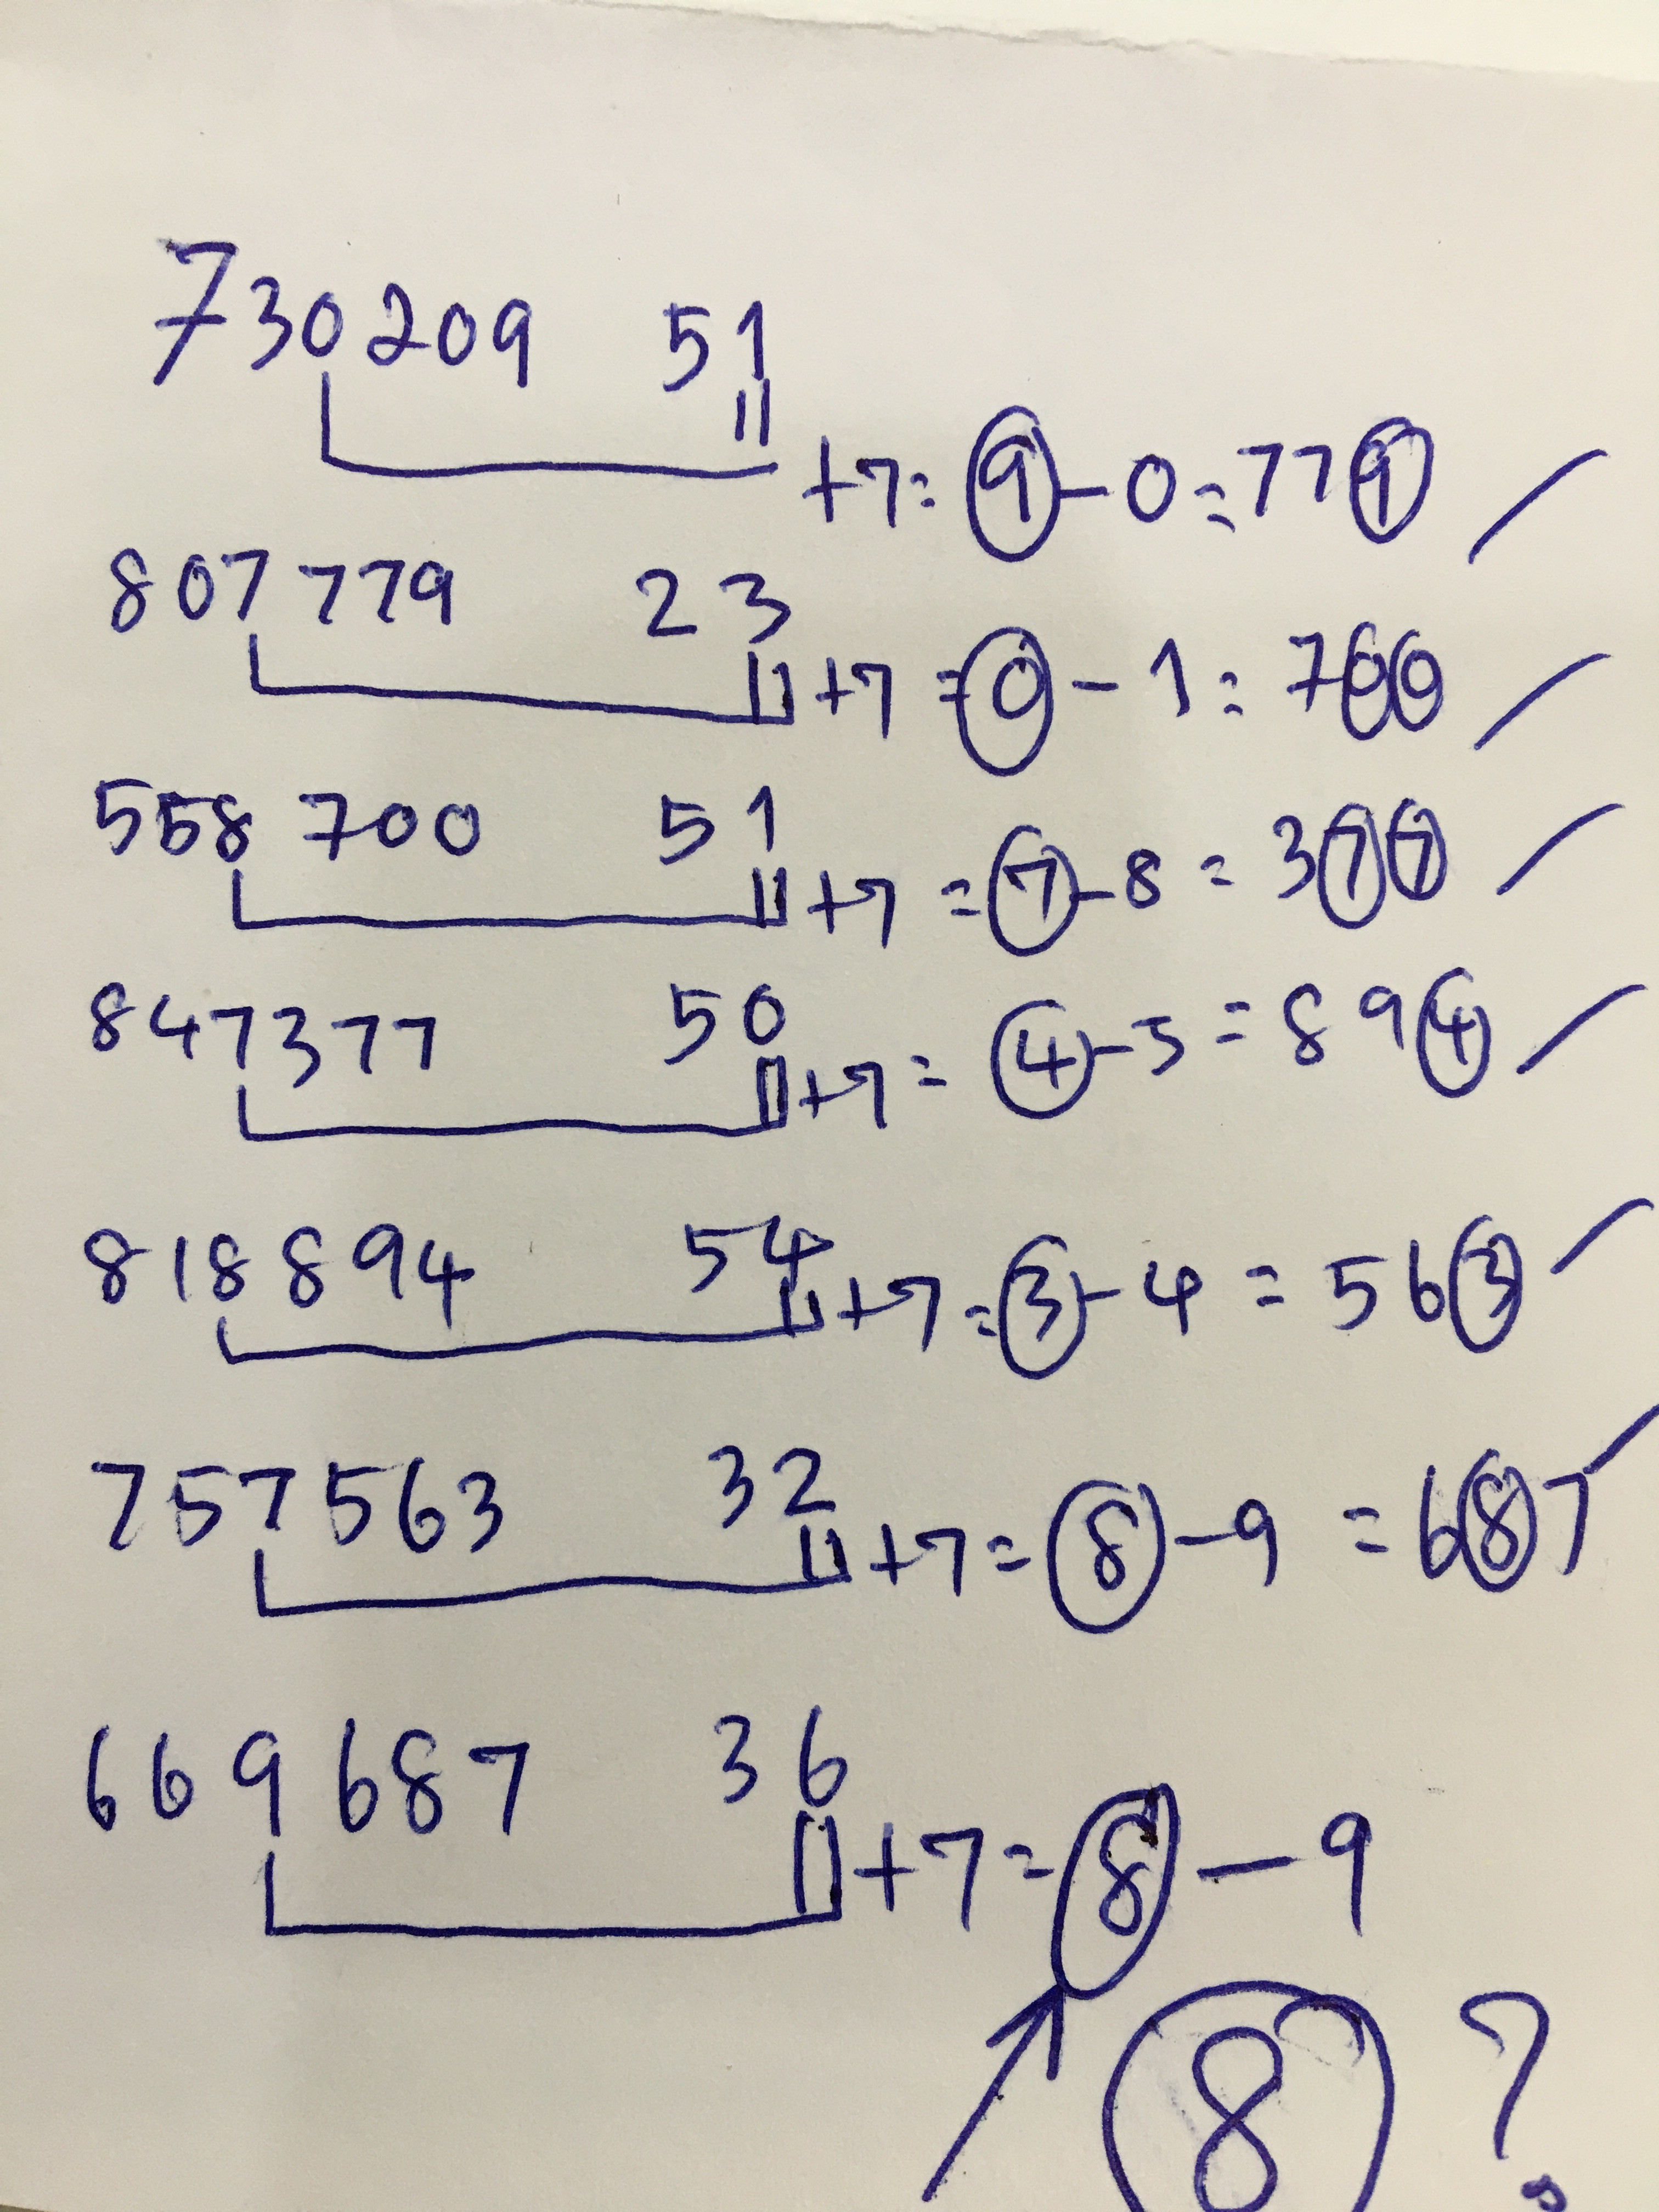 730209 51
+7= 9-0=779
807779 23
+7 =0-1= 700
558 700 51
+7 =7-8 = 377
847377 50
+7= 4-5=894
818894 54
+7=3-4 = 563
757563 32
+7=8-9 =687
669687 36
+7=8-9
8 ?